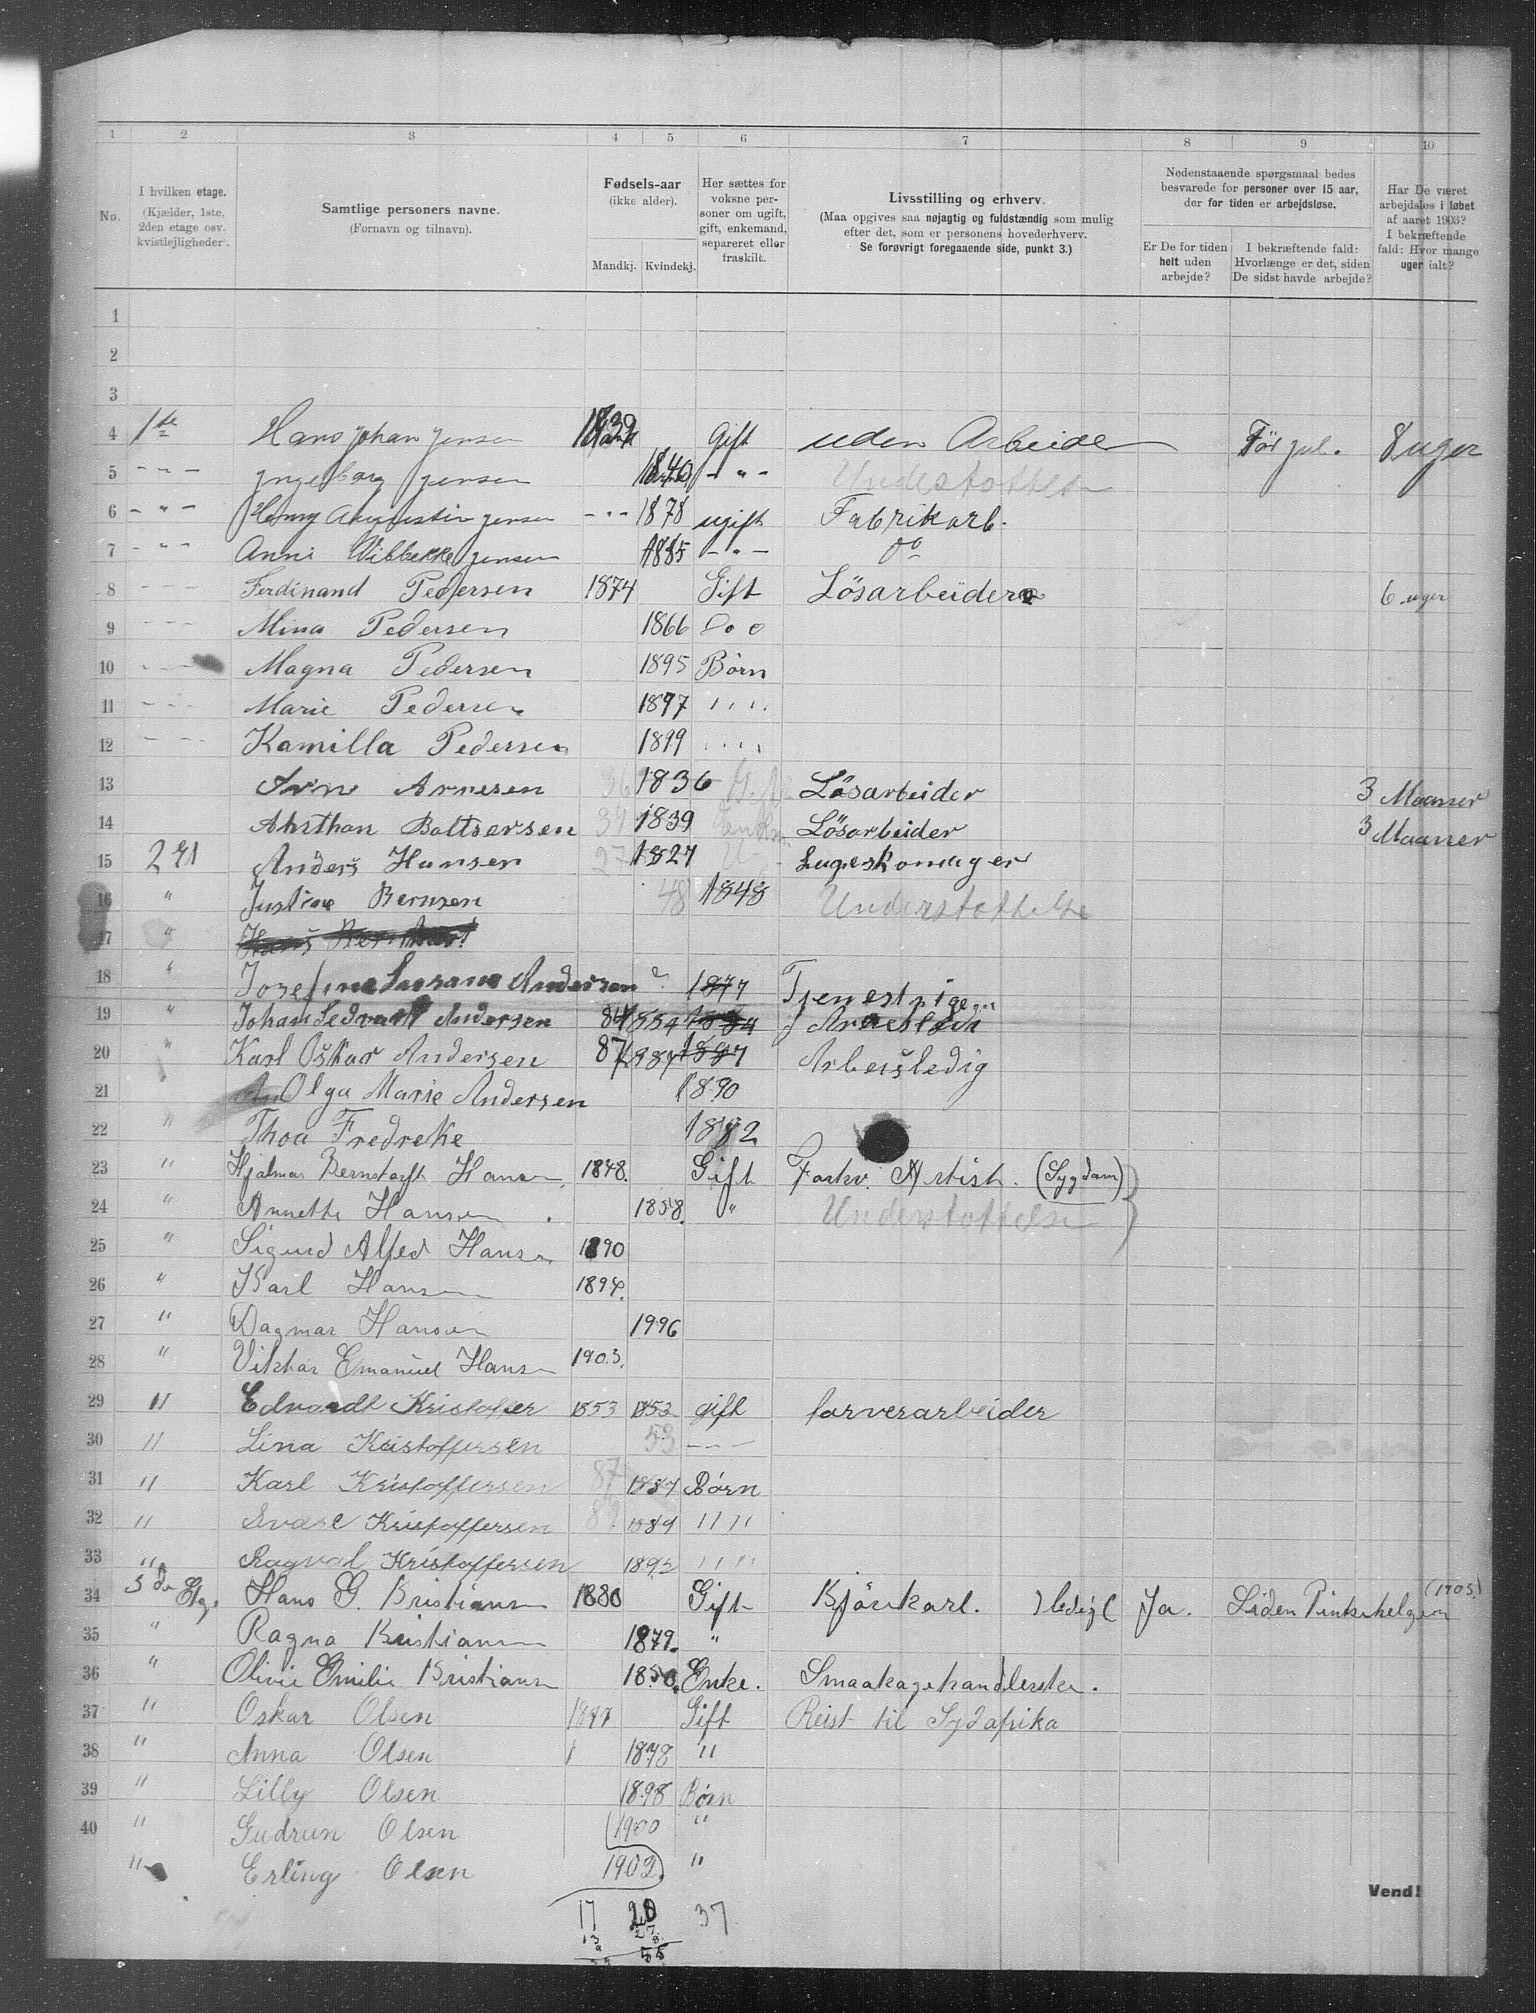 1 2 3 4 5 6 7 8 9 10
No.
I hvilken etage. (Kjælder, 1ste, 2den etage osv. kvistlejligheder).
Samtlige personers navne. (Fornavn og tilnavn).
Fødsels-aar (ikke alder).
Mandkj. Kvindekj.
Her sættes for voksne personer om ugift, gift, enkemand, separeret eller fraskilt.
Livsstilling og erhverv. (Maa opgives saa nøjagtig og fuldstændig som mulig efter det, som er personens hovederhverv. Se forøvrigt foregaaende side, punkt 3.)
Nedenstaaende spørgsmaal bedes besvarede for personer over 15 aar, der for tiden er arbejdsløse.
Er De for tiden helt uden arbejde?
I bekræftende fald: Hvorlænge er det, siden De sidst havde arbejde?
Har De været arbejdsløs i løbet af aaret 1903? I bekræftende fald: Hvor mange uger ialt?
1
2
3
4 1ste Hans Johan Jensen 1839 Gift uden Arbeide Før jul. 8 uger
5 - " - Ingeborg Jensen 1840 - " - Understøttet
6 - " - Henny Augustin Jensen - " - 1878 ugift Fabrikarb.
7 - " - Anni Vibbekke Jensen 1885 - " - do
8 - - - Ferdinand Pedersen 1874 Gift Lösarbeider 6 uger
9 - - - Mina Pedersen 1866 Do o
10 - - - Magna Pedersen 1895 Börn
11 - - - Marie Pedersen 1897 " "
12 - - - Kamilla Pedersen 1899 " "
13 Arne Arnesen 36 1836 Gift Lösarbeider 3 Maaneer
14 Ahsthan Baltsersen 39 1839 Lösarbeider 3 Maaneer
15 2 Et Anders Hansen 27 1827 Lapeskomager
16 " Justine Bernsen 48 1848 Understøttelse
17 " Hans
18 " Josefine Susane Andersen 1877 Tjenestpige
19 " Johan Andersen 84 1884
20 " Karl Oskar Andersen 87 1887 Arbeisledig
21 Olga Marie Andersen 1890
22 " Thoa Fredreke 1882
23 " Hjalmar Bernstorft Hansen 1848. Gift Forhv. Artist. (Sygdam)
24 " Annette Hansen 1858. " Understøttelse
25 " Sigurd Alfed Hansen 1890
26 " Karl Hansen 1894.
27 " Dagmar Hansen 1996
28 " Viktor Emanuel Hansen 1903.
29 " Edvardt Kristoffer 1853 1853 gift farverarbeider
30 " Lina Kristoffersen 53 - - -
31 " Karl Kristoffersen 87 1887 Børn
32 " Kristoffersen 89 1889 " "
33 " Ragval Kristoffersen 1892 " "
34 3de Etg. Hans G. Kristiansen 1880 Gift Kjörekarl. ledig Ja. Siden Pintsehelgen (1903)
35 " Ragna Kristiansen 1879. "
36 " Olivie Emilie Kristiansen 1850. Enke. Smaakagehandlerske.
37 " Oskar Olsen 1877 Gift Reist til Sydafrika
38 " Anna Olsen 1878 "
39 " Lilly Olsen 1898 Børn
40 " Gudrun Olsen 1900 "
" Erling Olsen 1902. "
Vend!
17 20 37
13 27
55